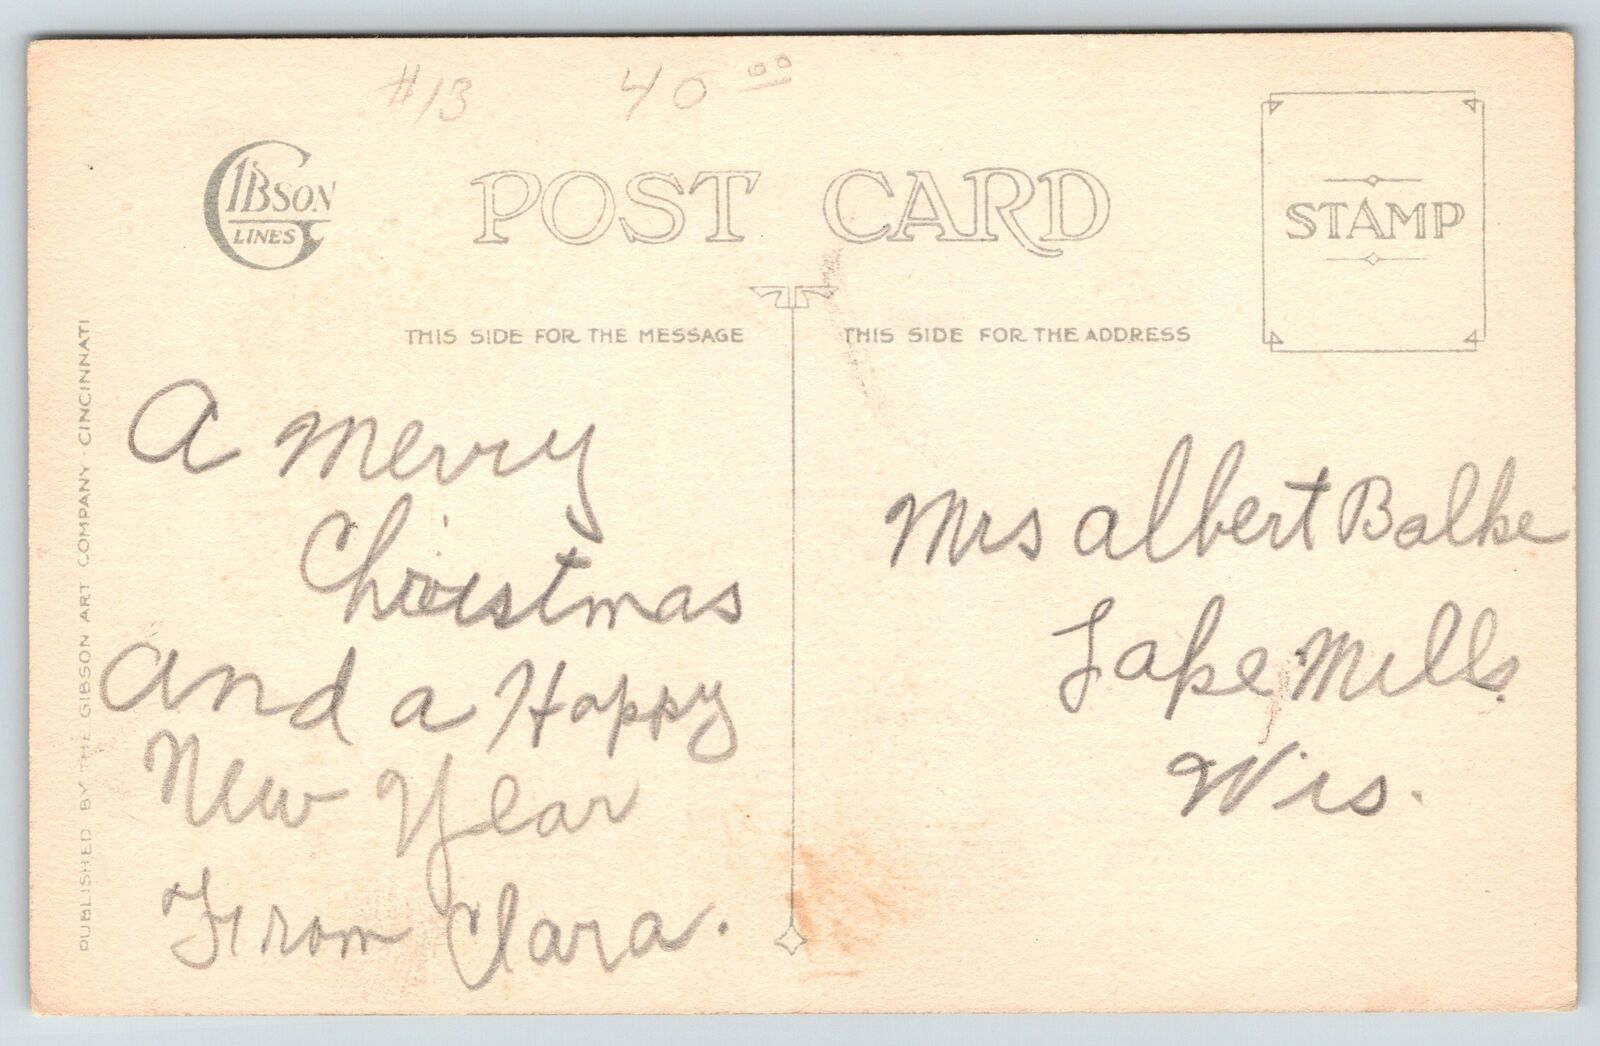 #13 40 00
GIBSON
LINES
POST CARD
STAMP
THIS SIDE FOR THE MESSAGE
THIS SIDE FOR THE ADDRESS
PUBLISHED BY THE GIBSON ART COMPANY · CINCINNATI
A Merry
Christmas
And a Happy
New Year
From Clara.
Mrs Albert Balke
Lake Mills.
Wis.